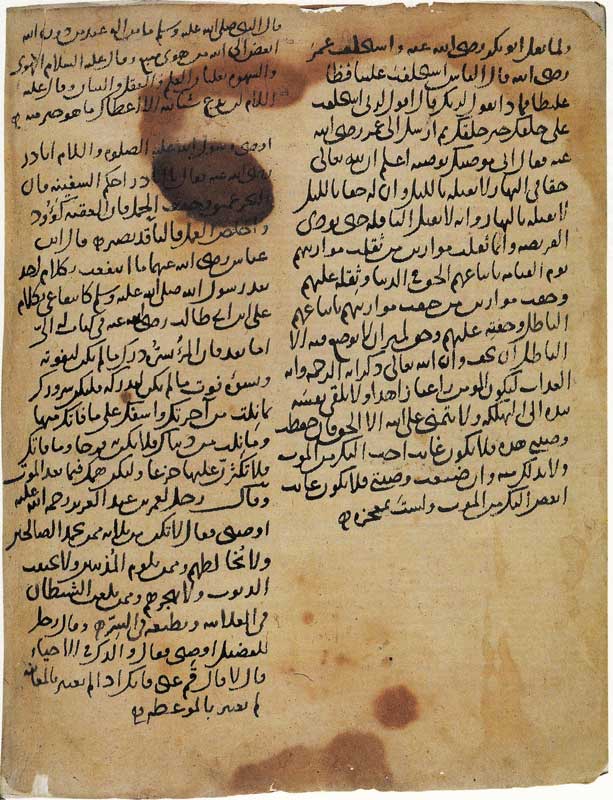 ولما ثقل ابو بكر رضى الله عنه واستخلف عمر
رضى الله قال الناس استخلفت علينا فظا
غليظا فماذا تقول لربك قال اقول لربى استخلفت
على خلقك خير خلقك ثم ارسل الى عمر رضى الله
عنه فقال انى موصيك بوصية اعلم ان لله تعالى
حقا فى النهار لا يقبله بالليل وان له حقا بالليل
لا يقبله بالنهار وانه لا يقبل النافلة حتى تودى
الفريضة وانما ثقلت موازين من ثقلت موازينهم
يوم القيامة باتباعهم الحق فى الدنيا وثقله عليهم
وخفت موازين من خفت موازينهم باتباعهم
الباطل وخفته عليهم وحق لميزان لا يوضع فيه الا
الباطل ان يخف وان الله تعالى ذكر اية الرحمة واية
العذاب ليكون المومن راغبا زاهدا ولا يلقى بنفسه
بيده الى التهلكة ولا يتمنى على الله الا الحق فان حفظت
وصيتى هذه فلا يكون غائب احب اليك من الموت
ولا بد لك منه وان ضيعت وصيتى فلا يكون غائب
ابغض اليك من الموت ولست بمعجزه
قال النبى صلى الله عليه وسلم ما من اله عبد من دون الله
ابغض الى الله من هوى متبع وقال عليه السلام الهوى
والشهوة يغلبان العلم والعقل والبيان وقال عليه
السلام لن يدع شيئا لله الا اعطاك ما هو خير منه
اوصى رسول الله عليه الصلوة والسلام ابا ذر
رضى الله عنه فقال يا ابا ذر احكم السفينة فان
البحر عميق وخفف الحمل فان العقبة كؤود
واخلص العمل فالناقد بصير قال ابن
عباس رضى الله عنهما ما انتفعت بكلام احد
بعد رسول الله صلى الله عليه وسلم كانتفاعى بكلام
على ابن ابى طالب رضى الله عنه فى كتاب الى
اما بعد فان المرء يسره درك ما لم يكن ليفوته
ويسوءه فوت ما لم يكن ليدركه فليكن سرورك
بما نلت من آخرتك واسفك على ما فاتك منها
وما نلت من دنياك فلا تكن به فرحا وما فاتك
فلا تكثر عليها جزعا وليكن همك فيما بعد الموت
وقال رجل لعمر بن عبد العزيز رحمة الله عليه
اوصنى فقال لا تكن من يلابه ممن يحمد الصالحين
ولا يخالطهم وممن يلوم المذنبين ولا يجتنب
الذنوب ولا يهجرهم وممن يلعن الشيطان
فى العلانية ويطيعه فى السر وقال رجل
للفضيل اوصنى فقال والدك فى الاحياء
قال لا قال قم عنى فانك اذا لم
لم بالموعظة